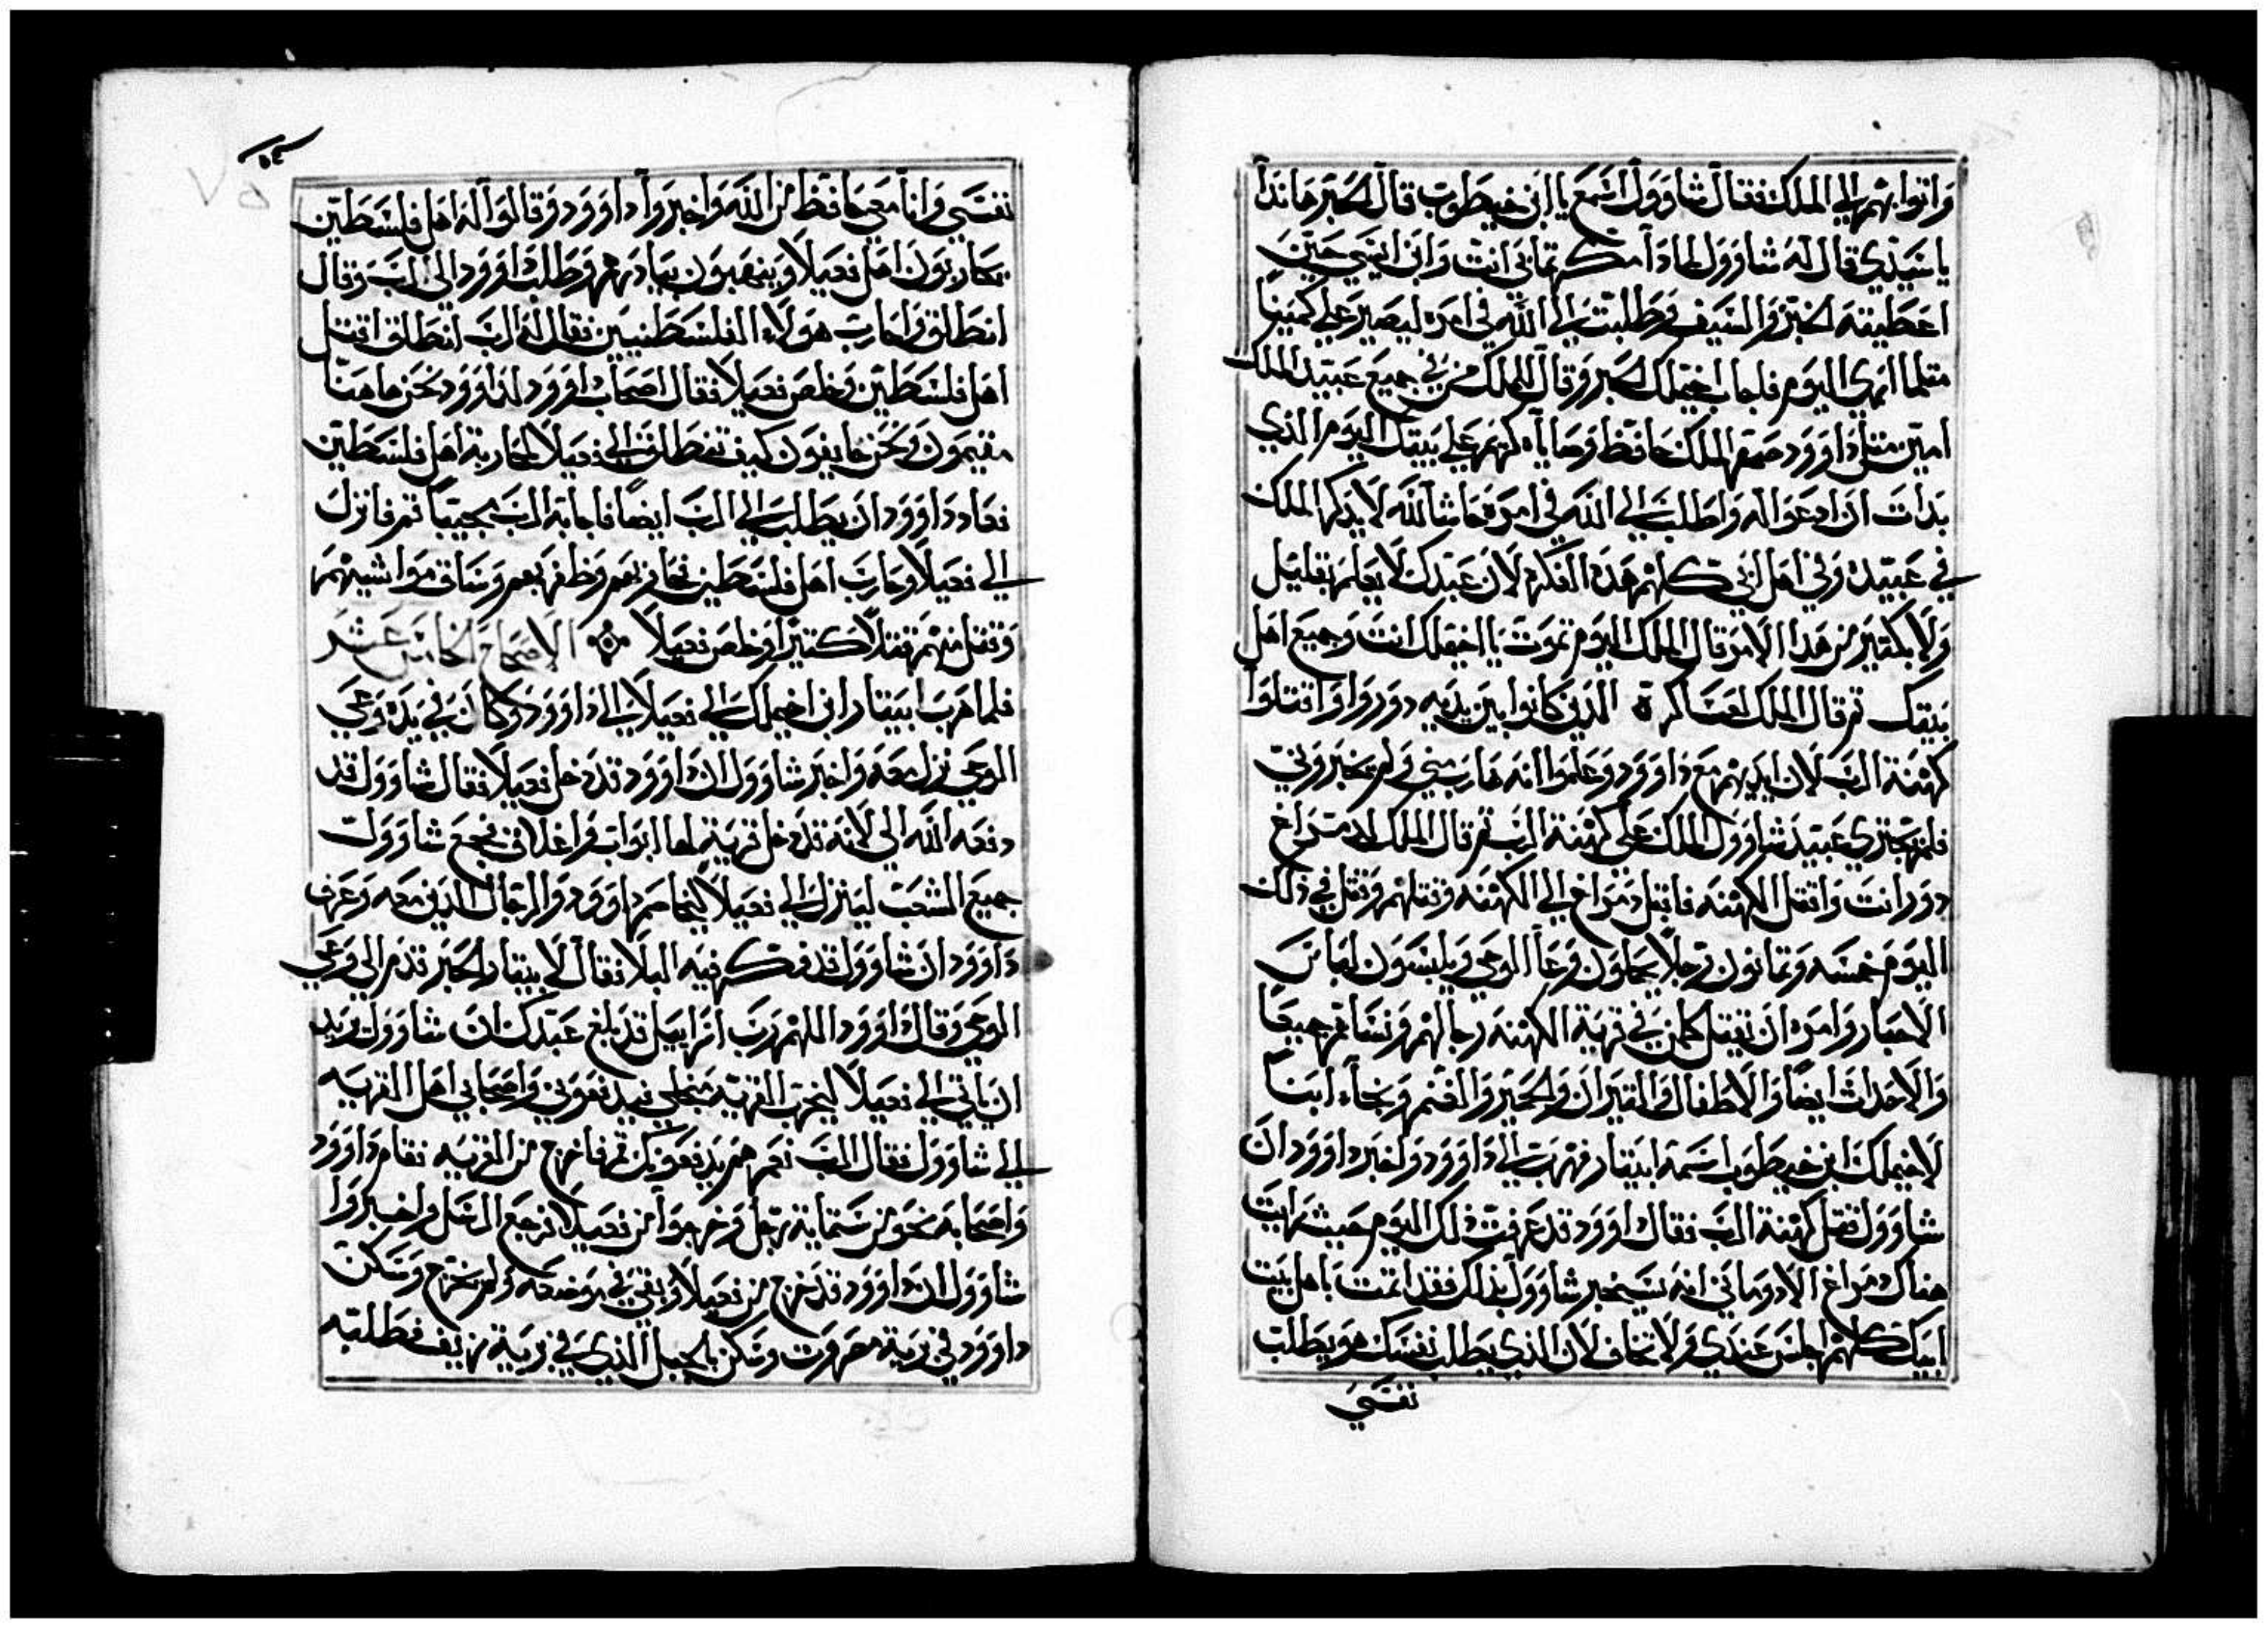 واتوا بهم الي الملك فقال شاوول اسمع يا ابن خيطوب قال الحبر هاندا
يا سيدي قال له شاوول لماذا مكرتما بي انت وابن ايسي حين
اعطيته الخبز والسيف وطلبت الي الله في امره ليصير علي كمينا
مثلما انه الي اليوم فاجاب اخيملك الحبر وقال للملك من في جميع عبيد الملك
امين مثل داوود صهر الملك حافظ وصاياه كريم علي بيتك اليوم الذي
بدات ان ادعوا له واطلب الي الله في امره حاشا لله لا يذكر الملك
في عبيده وفي اهل ابي كلهم هذه الفكره لان عبدك لا يعلم بقليل
ولا بكثير من هذا الامر قال الملك اليوم تموت يا اخيملك انت وجميع اهل
بيتك ثم قال الملك لعساكرة الذين كانوا بين يديه دوروا واقتلوا
كهنة الرب لان ايديهم مع داوود وعلموا انه هارب مني ولم يخبروني
فلم يجتري عبيد شاوول الملك علي كهنة الرب ثم قال الملك لدراغ
دور انت واقتل الكهنه فاقبل دراغ الي الكهنه وقتلهم وقتل في ذلك
اليوم خمسه وثمانون رجلا يحملون وعا الوحي ويلبسون لباس
الاحبار وامره ان يقتل كلمن في قرية الكهنه رجالهم ونساهم جميعا
والاحداث ايضا والاطفال والثيران والحمير والغنم ونجا ابنا
لاخيملك ابن خيطوب اسمه ابيتار فهرب الي داوود واخبر داوود ان
شاوول قتل كهنة الرب فقال داوود قد عرفت ذلك اليوم حيث رايت
هناك دراغ الادوماني انه سيخبر شاوول بذلك فقد اثمت باهل بيت
ابيك كلهم اجلس عندي ولا تخاف لان الذي يطلب نفسك هو يطلب
نفسي
نفسي وانا معي حافظ من الله واخبروا داوود وقالوا له اهل فلسطين
يحاربون اهل قعيلا وينهبون بيادرهم وطلب داوود الي الرب وقال
انطلق واحارب هولاء الفلسطنيين فقال له الرب انطلق اقتل
اهل فلسطين وخلص قعيلا فقال اصحاب داوود لداوود نحن هاهنا
مقيمون ونحن خايفون كيف ننطلق الي قعيلا لمحاربة اهل فلسطين
فعاد داوود ان يطلب الي الرب ايضا فاجابه الرب مجيبا قم فانزل
الي قعيلا وحارب اهل فلسطين فحاربهم وظفر بهم وساق مواشيهم
وقتل منهم قتلا كثيرا وخلص قعيلا الاصحاح الخامس عشر
فلما هرب ابيتار ابن اخيملك الي قعيلا الي داوود وكان في يده وعي
الوحي نزل معه واخبر شاوول ان داوود قد دخل قعيلا فقال شاوول قد
دفعه الله الي لانه قد دخل قرية لها ابواب واغلاق فجمع شاوول
جميع الشعب لينزل الي قعيلا ليحاصر داوود والرجال الذين معه وعرف
داوود ان شاوول قد فكر فيه البلا فقال لابيتار الحبر قدم الي وعي
الوحي وقال داوود اللهم رب اسراييل قد بلغ عبدك ان شاوول يريد
ان ياتي الي قعيلا ليخرب القريه من اجلي فيدفعوني واصحابي اهل القريه
الي شاوول فقال الرب نعم هم يدفعونك قم فاخرج من القريه فقام داوود
واصحابه نحو من ستماية رجل وخرجوا من قعيلا فرجع الدخل واخبروا
شاوول ان داوود قد خرج من قعيلا وبقي في موضعه ولم يخرج وسكن
داوود في برية مصروت وسكن الجبل الذي في برية زيف فطلبه